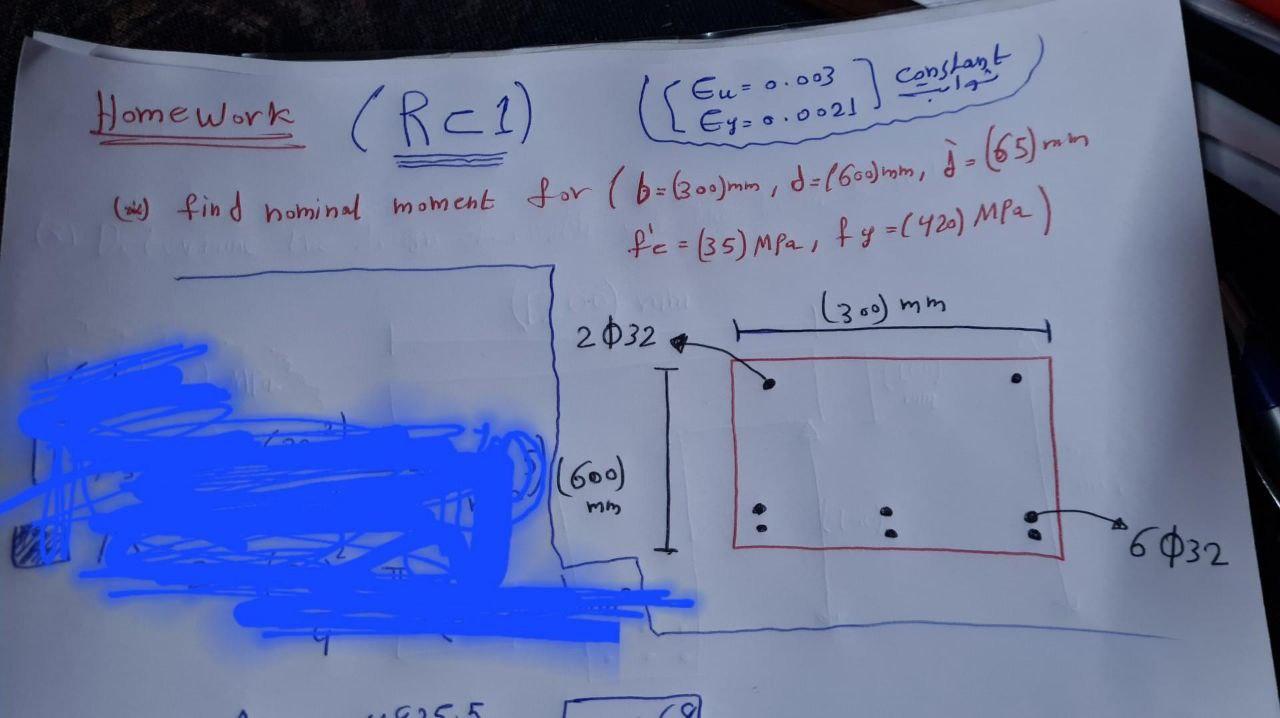 Homework (RC1)
([Eu = 0.003
Ey = 0.0021] constant
ثوابت)
(*) find nominal moment for (b=(300)mm, d=(600)mm, d̀=(65)mm
f'c = (35) MPa, fy = (420) MPa)
(300) mm
2ϕ32
(600)
mm
6ϕ32